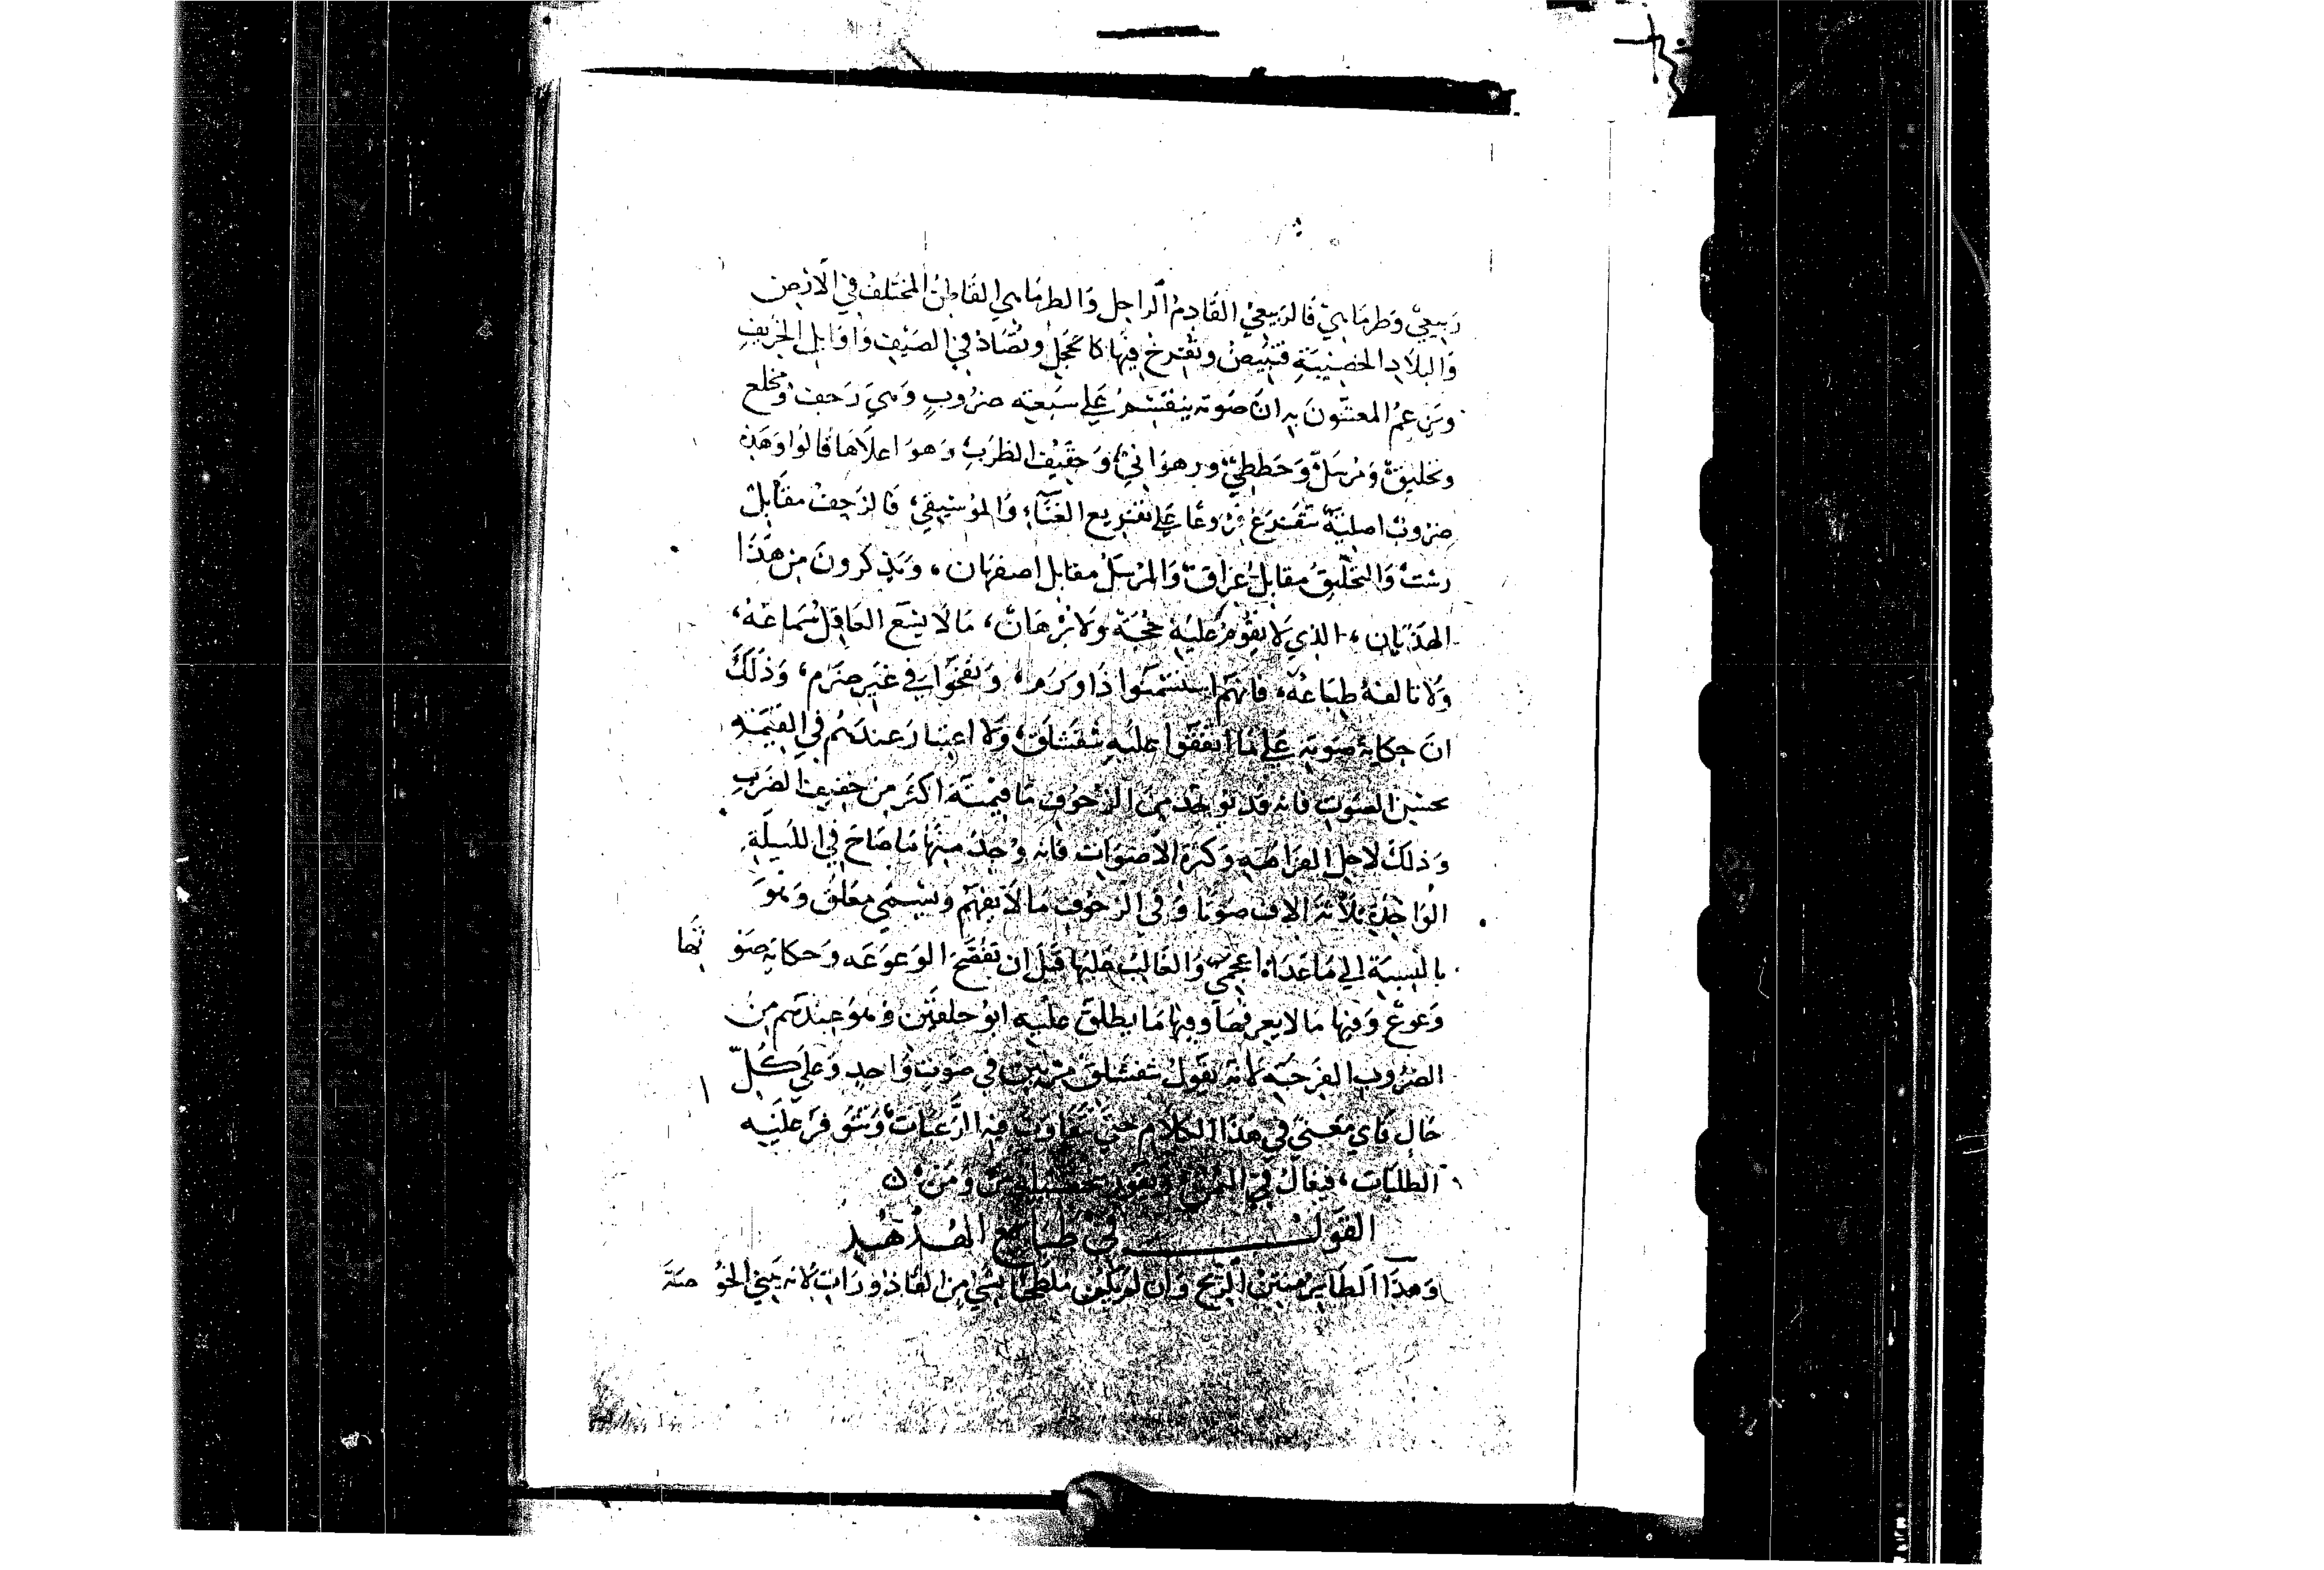 ربيعيّ وَطرمَاهيّ فَالربيعيّ القَادِمُ الراحِل وَالطرمَاهي القَاطِنُ المختلفُ في الارْض
وَالبلَادِ الخصِيبَةِ فتبيضُ وتُفرخُ فيهَا كالحَجل وتُصَادُ في الصَيْفِ وَاوَايل الخَريفِ
وَيزعمُ المعتنونَ به انَ صَوته ينقسمُ علي سَبعَة ضرُوبٍ وَهي زحف ومخلع
وتخليقٌ وَمُرسَلٌ وَحَططيٌ ورهوَانيٌ وَخفيفُ الضرَبِ وَهوَ اعلاهَا قَالوُا وَهَذِه
ضروبٌ اصليةٌ تتفرعُ فروعًا علي تفريع الغنَاءِ وَالموُسيقي، فَالزحفُ مقَابلُ
رسْت وَالتخليقُ مقابلُ عراقٍ وَالمرْسَلُ مقابل اصفهَان، وَيَذكرونَ مِن هَذَا
الهذيَان، الذي لَا يقوُمُ عليهِ حُجَة وَلَا بُرْهَان، مَا لَا يسَع العَاقِلُ سَماعَهُ،
وَلَا تالفهُ طِبَاعُهُ، فانهُم استسْمنوا ذَا ورَم، وَنفخوُا في غيرِ ضرَم، وَذَلكَ
انَ حِكايةَ صَوتِه عَلي مَا اتفقوا عليهِ شقشلق، وَلَا اعتبارَ عندَهُم في القيمَةِ
بحسْن الصَوت فانه قد يوُجَدُ مِنَ الزحُوفِ مَا قيمتَهُ اكثر مِن خفيفِ الضرَبِ
وَذلكَ لاجل الفرَاهَةِ وَكثرة الاصوَات فانه وُجدَ منهَا مَا صَاحَ في الليلَةِ
الوَاحِدَةِ ثلَاثَةَ الاف صَوتًا وَفي الزحُوف مَا لَا يفهَم ويسمي مغلق وَهوَ
بالنسبَةِ الي مَا عدَاهُ اعجمي وَالغَالبُ عليهَا قبلَ ان تفصحَ الوَعوَعَه وَحكايَة صَوْ تها
وَعوع وَفيها مَا لا يعرفهَا وفيهَا مَا يطلق عليه ابوُ حلقتين وَهوَ عندَهم مِنَ
الضرُوبِ الفرَحيَه لانه يَقولُ شقشلق مرتين في صَوتٍ وَاحدٍ وَعَلي كُلّ
حَال فَاي مَعني في هَذا الكلَام حَتي تتفاوت فيه الرَغبَاتُ وَتتوَفر عليه
الطلبَات، فيغالُ في الثمن،
القوَل في طبَايع الهُدْهُد
وَهذَا الطَاير منتن الريح وَان لم يكن ملطخًا بشي مِن القاذورَات لانه يَبني الخوُ صَة